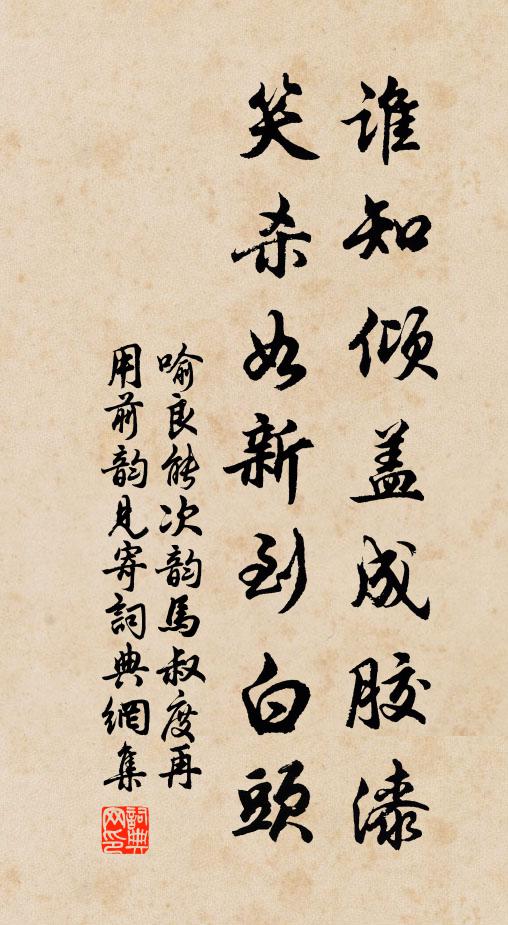 谁知倾盖成胶漆
笑杀如新到白頭
喻良能次韵馬叔度再
用前韵見寄詞典網集
詞典网印